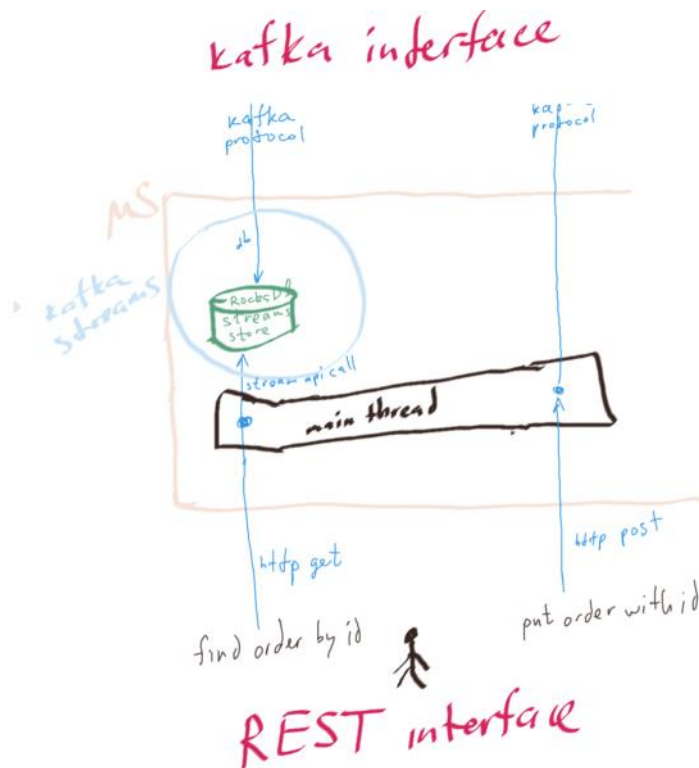 kafka interface
kafka
protocol
protocol
μS
kafka
streams
db
RocksDB
streams
store
stream api call
main thread
http get
http post
find order by id
put order with id
REST interface